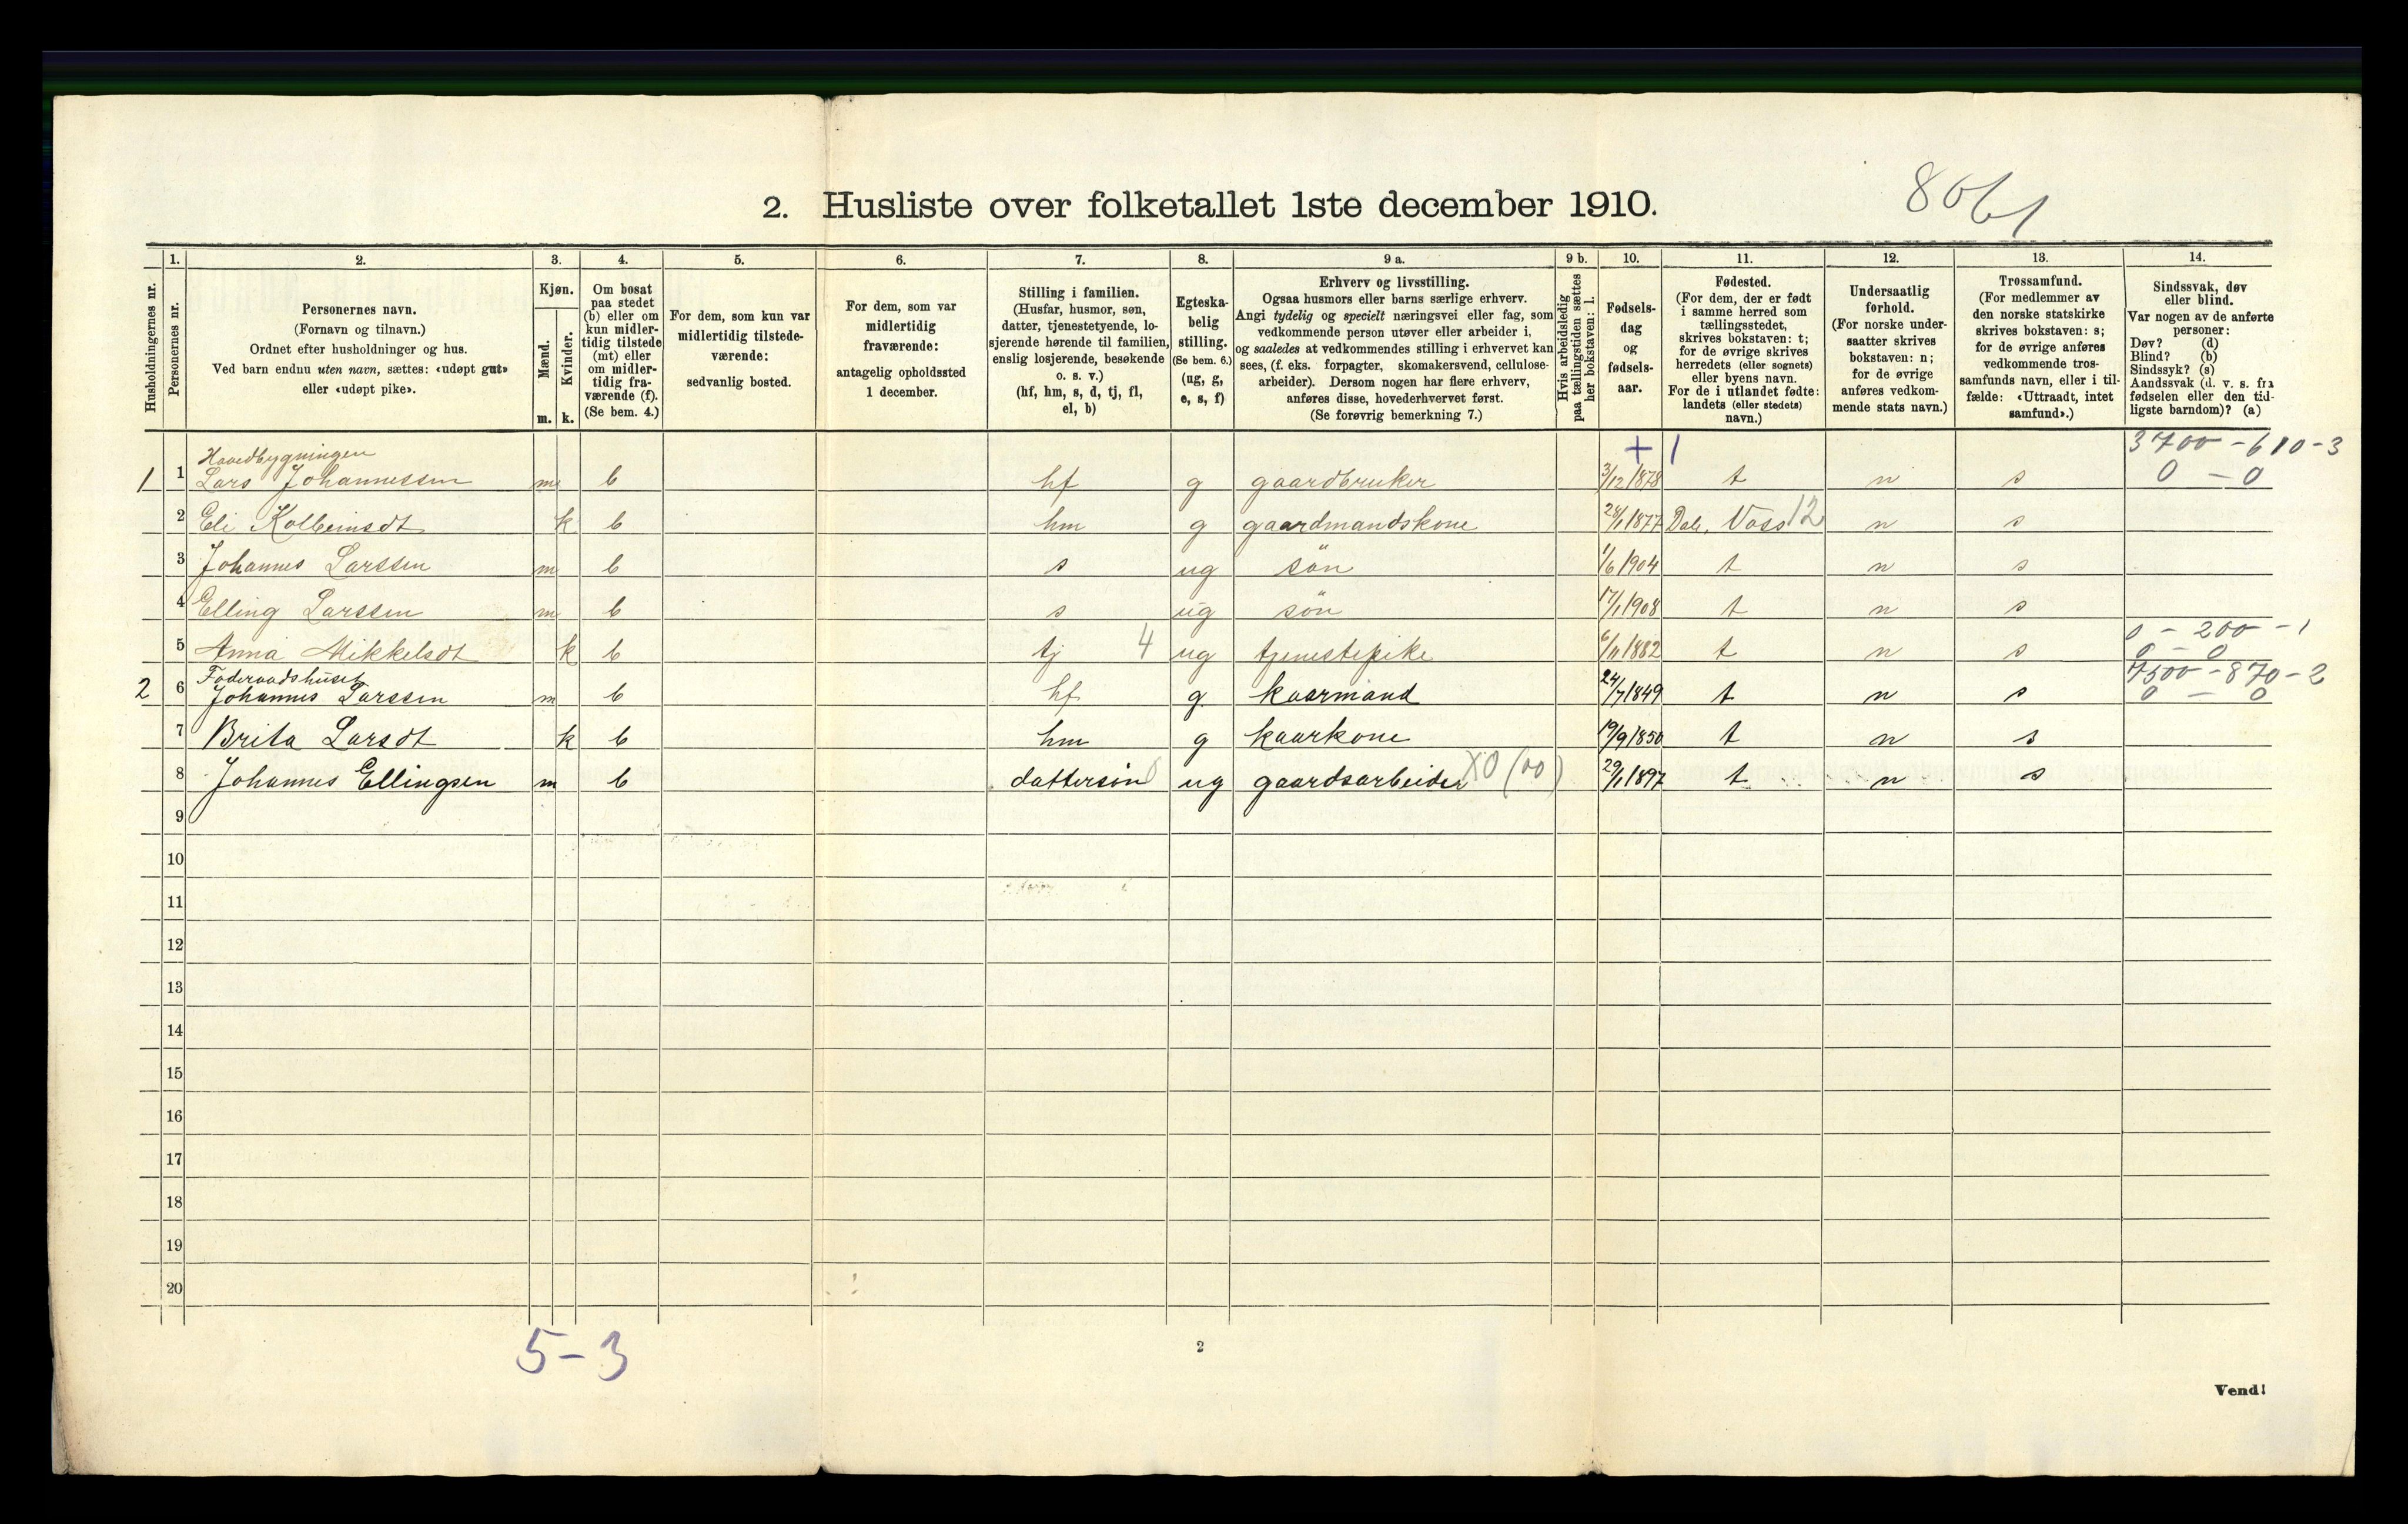 8061
2. Husliste over folketallet 1ste december 1910.
Husholdningernes nr.
1.
Personernes nr.
2.
Personernes navn.
(Fornavn og tilnavn.)
Ordnet efter husholdninger og hus.
Ved barn endnu uten navn, sættes: «udøpt gut»
eller «udøpt pike».
3.
Kjøn.
Mænd.
Kvinder.
m. k.
4.
Om bosat
paa stedet
(b) eller om
kun midler-
tidig tilstede
(mt) eller
om midler-
tidig fra-
værende (f).
(Se bem. 4.)
5.
For dem, som kun var
midlertidig tilstede-
værende:
sedvanlig bosted.
6.
For dem, som var
midlertidig
fraværende:
antagelig opholdssted
1 december.
7.
Stilling i familien.
(Husfar, husmor, søn,
datter, tjenestetyende, lo-
sjerende hørende til familien,
enslig losjerende, besøkende
o. s. v.)
(hf, hm, s, d, tj, fl,
el, b)
8.
Egteska-
belig
stilling.
(Se bem. 6.)
(ug, g,
e, s, f)
9 a.
Erhverv og livsstilling.
Ogsaa husmors eller barns særlige erhverv.
Angi tydelig og specielt næringsvei eller fag, som
vedkommende person utøver eller arbeider i,
og saaledes at vedkommendes stilling i erhvervet kan
sees, (f. eks. forpagter, skomakersvend, cellulose-
arbeider). Dersom nogen har flere erhverv,
anføres disse, hovederhvervet først.
(Se forøvrig bemerkning 7.)
9 b.
Hvis arbeidsledig
paa tællingstiden sættes
her bokstaven: l.
10.
Fødsels-
dag
og
fødsels-
aar.
11.
Fødested.
(For dem, der er født
i samme herred som
tællingsstedet,
skrives bokstaven: t;
for de øvrige skrives
herredets (eller sognets)
eller byens navn.
For de i utlandet fødte:
landets (eller stedets)
navn.)
12.
Undersaatlig
forhold.
(For norske under-
saatter skrives
bokstaven: n;
for de øvrige
anføres vedkom-
mende stats navn.)
13.
Trossamfund.
(For medlemmer av
den norske statskirke
skrives bokstaven: s;
for de øvrige anføres
vedkommende tros-
samfunds navn, eller i til-
fælde: «Uttraadt, intet
samfund».)
14.
Sindssvak, døv
eller blind.
Var nogen av de anførte
personer:
Døv? (d)
Blind? (b)
Sindssyk? (s)
Aandssvak (d. v. s. fra
fødselen eller den tid-
ligste barndom)? (a)
Hovedbygningen + 1 3700 - 610 - 3
1 1 Lars Johannessen m b hf g gaardbruker 3/12 1878 t n s 0 - 0
2 Eli Kolbeinsdt k b hm g gaardmandskone 28/1 1877 Dale, Voss 12 n s
3 Johannes Larssen m b s ug sön 1/6 1904 t n s
4 Elling Larssen m b s ug sön 17/1 1908 t n s
0 - 200 - 1
5 Anna Mikkelsdt k b tj 4 ug tjenestepike 6/11 1882 t n s 0 - 0
Föderaadshuset 7500 - 870 - 2
2 6 Johannes Larssen m b hf g kaarmand 24/7 1849 t n s 0 - 0
7 Brita Larsdt k b hm g kaarkone 19/9 1850 t n s
8 Johannes Ellingsen m b dattersön ug gaardsarbeider X0 (00) 29/1 1897 t n s
9
10
11
12
13
14
15
16
17
18
19
20
5-3
2
Vend!